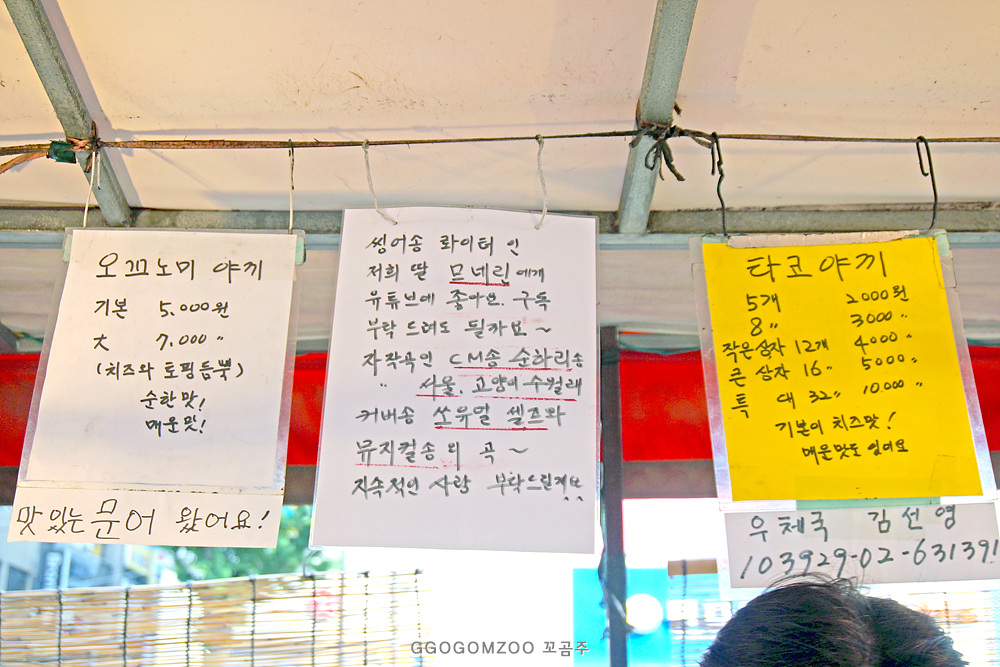 오끄노미 야끼
기본 5,000원
大 7,000 〃
(치즈와 토핑듬뿍)
순한맛!
매운맛!
맛있는 문어 왔어요!
씽어송 롸이터 인
저희 딸 므네린에게
유튜브에 좋아보 구독
부탁 드려도 될까요~
자작곡인 CM송 순하리송
〃 사울. 고양이수컬래
커버송
뮤지컬송 곡 ~
지속적인 사랑 부탁드릴게요!!
타코야끼
5개 2000원
8〃 3000 〃
작은상자 12개 4000 〃
큰 상자 16〃 5000 〃
특 대 32〃 10,000 〃
기본이 치즈맛!
매운맛도 있어요
우체국 김선영
103929-02-631391
GGOGOMZOO 꼬곰주